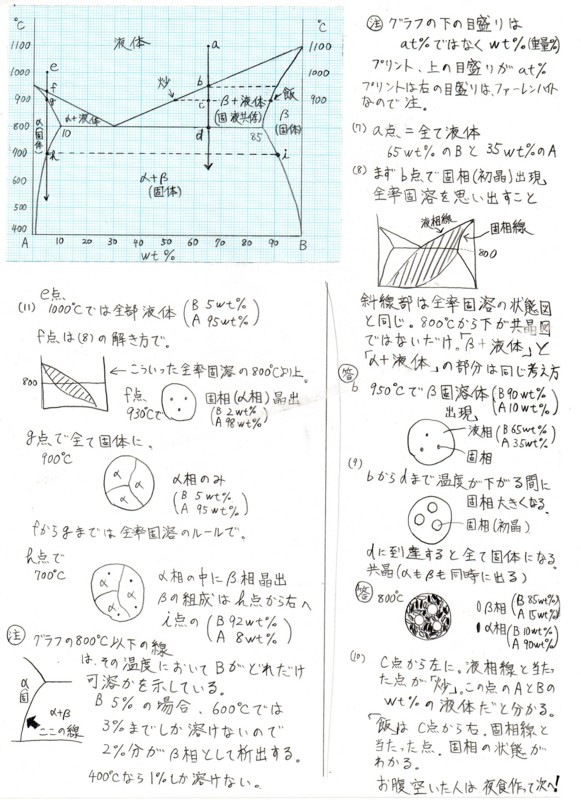 °C
°C
1100
1000
900
800
700
600
500
400
1100
1000
900
800
液体
a
e
f
g
炒
b
c
β+液体
(固液共体)
飯
β
(固体)
α+液体
α(固体)
10
d
85
h
i
α+β
(固体)
A 10 20 30 40 50 60 70 80 90 B
wt%
注 グラフの下の目盛りは
at%ではなくwt%(重量%)
プリント、上の目盛りがat%
プリントは右の目盛りは、ファーレンハイト
なので注。
(7) a点=全て液体
65wt%のBと35wt%のA
(8) まずb点で固相(初晶)出現
全率固溶を思い出すこと
液相線
固相線
800
斜線部は全率固溶の状態図
と同じ。800℃から下が共晶図
ではないだけ。「β+液体」と
「α+液体」の部分は同じ考え方
答
b 950℃でβ固溶体(B 90wt%
A 10wt%
出現
液相(B 65wt%
A 35wt%
固相
(9)
bからdまで温度が下がる間に
固相大きくなる。
固相(初晶)
dに到達すると全て固体になる。
共晶(αもβも同時に出る)
答 800℃
β相(B 85wt%
A 15wt%
α相(B 10wt%
A 90wt%
(10) C点から左に。液相線と当たっ
た点が、「炒」。この点のAとBの
wt%の液体だと分かる。
「飯」はC点から右。固相線と
当たった点。固相の状態が
わかる。
お腹空いた人は夜食作って次へ!
e点、
(11) 1000℃では全部液体(B 5wt%
A 95wt%
f点は(8)の解き方で。
800
←こういった全率固溶の800℃より上。
f点
930℃で
固相(α相)晶出
(B 2wt%
A 98wt%
g点で全て固体に、
900℃
α
α
α
α相のみ
(B 5wt%
A 95wt%
fからgまでは全率固溶のルールで。
h点で
700℃
α
α
α
α相の中にβ相晶出
βの組成はh点から右へ
i点の(B 92wt%
A 8wt%
注 グラフの800℃以下の線
は、その温度においてBがどれだけ
可溶かを示している。
B 5%の場合、600℃では
3%までしか溶けないので
2%分がβ相として析出する。
400℃なら1%しか溶けない。
α
固
α+β
ここの線